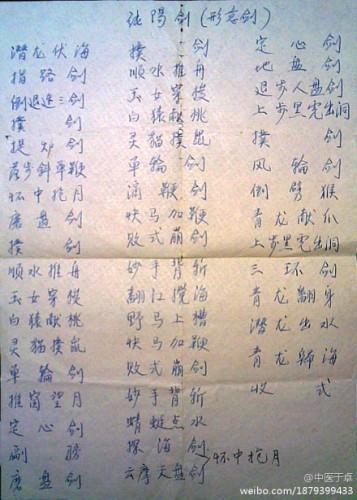 纯陽剑(形意剑)
潜龙伏海
指路剑
倒退连三剑
撲剑
提炉剑
退步斜单鞭
怀中抱月
磨盘剑
撲剑
顺水推舟
玉女穿梭
白猿献桃
灵猫撲鼠
单輪剑
推窗望月
定心剑
剐膀
磨盘剑
撲剑
顺水推舟
玉女穿梭
白猿献桃
灵猫撲鼠
单輪剑
滴鞭剑
快马加鞭
败式崩剑
妙手背斩
翻江搅海
野马上槽
快马加鞭
败式崩剑
妙手背斩
蜻蜓点水
探海剑
怀中抱月
云摩天盘剑
定心剑
地盘剑
退步人盘剑
上步黑熊出洞
撲剑
风輪剑
倒劈猴
青龙献爪
上步黑熊出洞
三环剑
青龙翻身
潜龙出水
青龙归海
收式
@中医于卓
weibo.com/1879399433